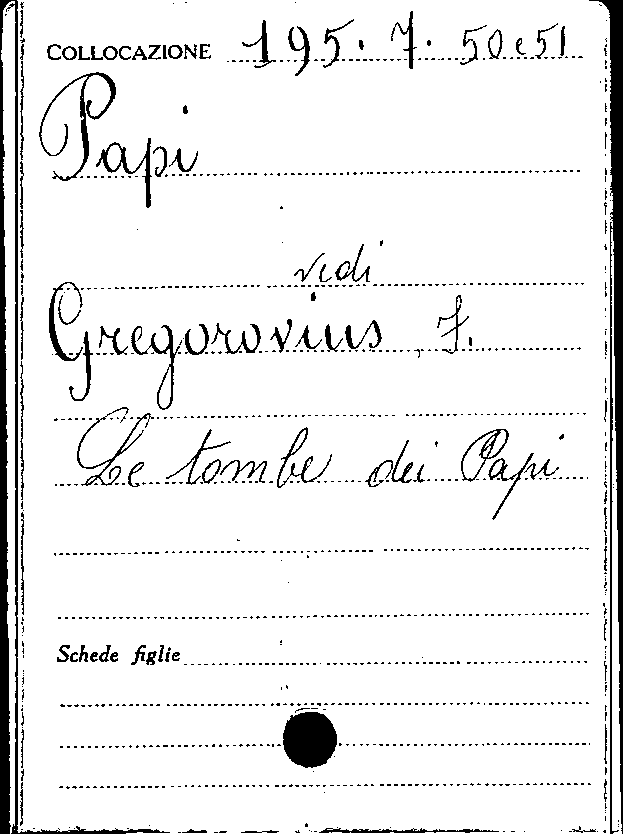 COLLOCAZIONE 195. 7. 50 e 51
Papi
vedi
Gregorovius, F.
Le tombe dei Papi
Schede figlie